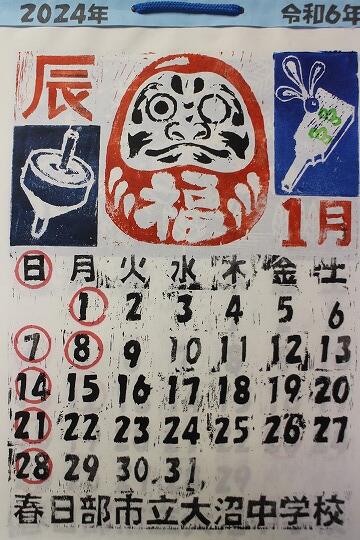 2024年 令和6年
辰
福
1月
日 月 火 水 木 金 土
1 2 3 4 5 6
7 8 9 10 11 12 13
14 15 16 17 18 19 20
21 22 23 24 25 26 27
28 29 30 31
春日部市立大沼中学校